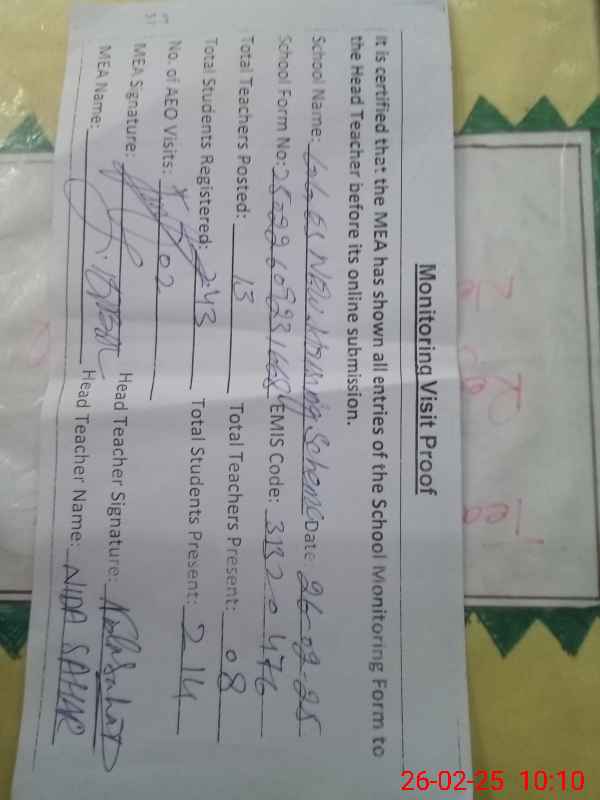 Monitoring Visit Proof
It is certified that the MEA has shown all entries of the School Monitoring Form to
the Head Teacher before its online submission.
School Name: NEW Morning Scheme Date: 26-02-25
School Form No: EMIS Code: 31320476
Total Teachers Posted: 13 Total Teachers Present: 08
Total Students Registered: 243 Total Students Present: 214
No. of AEO Visits: 02
MEA Signature: Head Teacher Signature:
MEA Name: Head Teacher Name: NIDA SAHAR
26-02-25 10:10